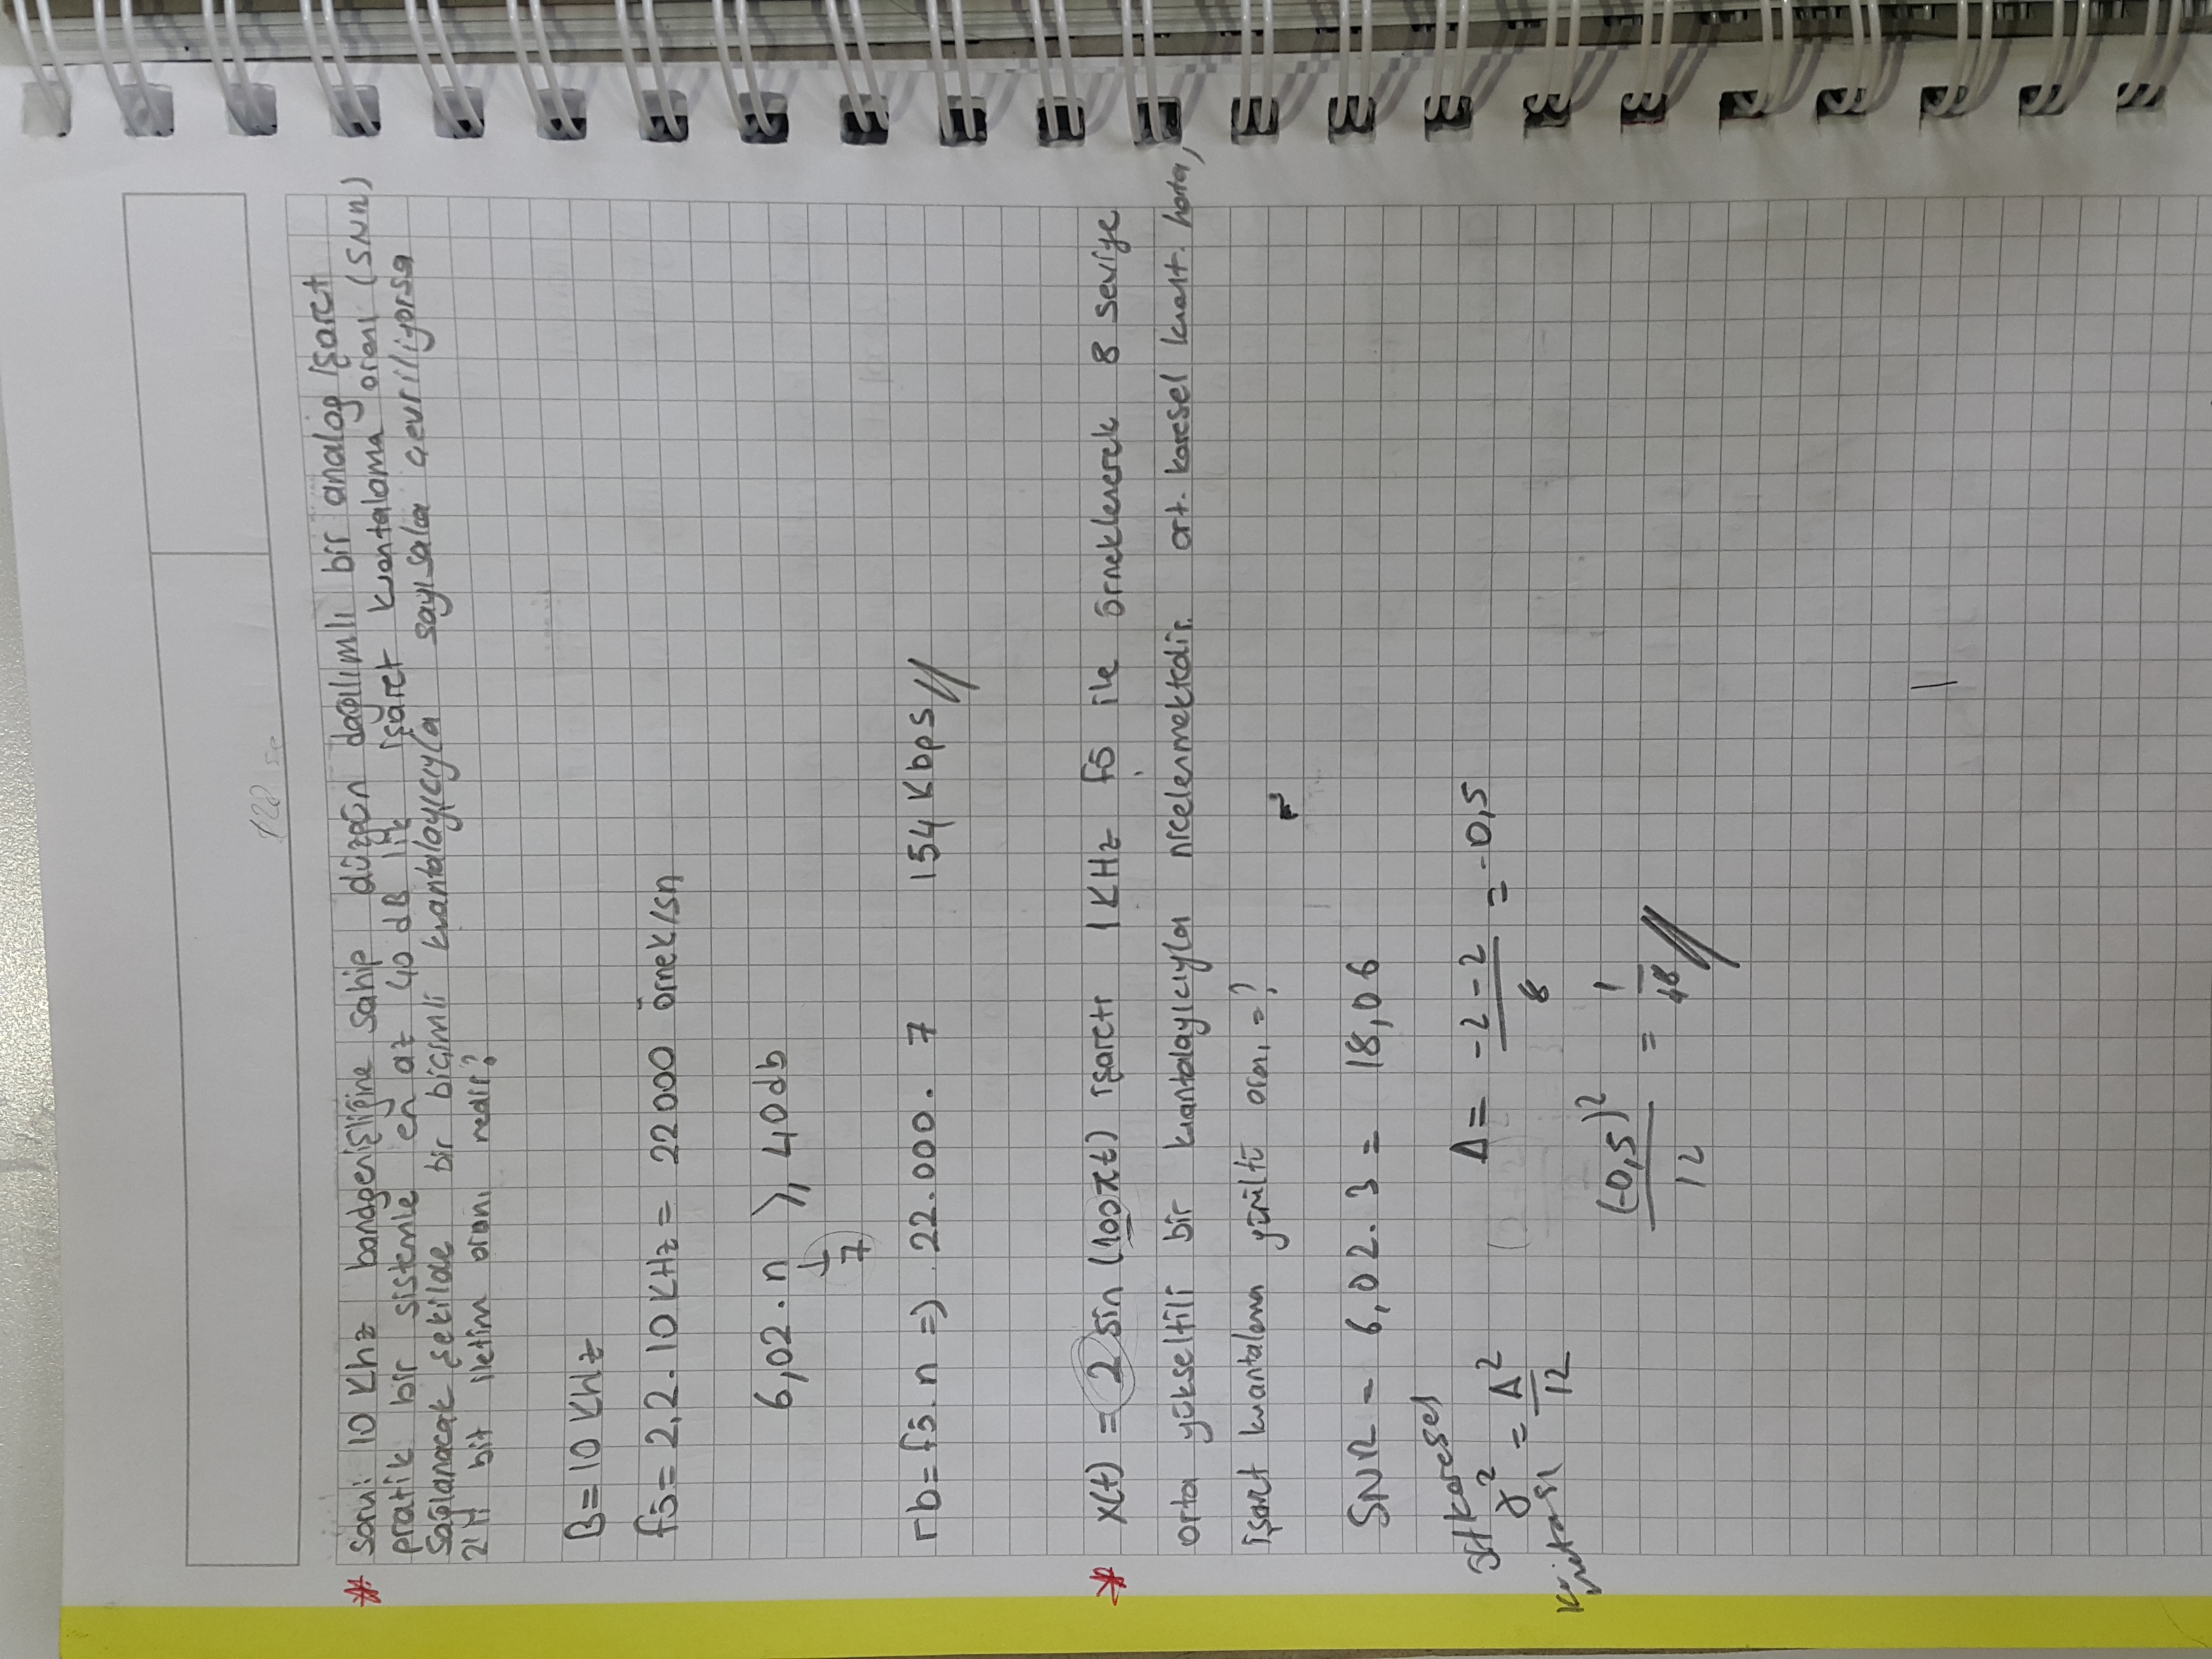 128 se
* Soru: 10 Khz bandgenişliğine sahip düzgün dağılımlı bir analog işaret
pratik bir sistemle en az 40 dB lik işaret kuantalama oranı (SNR)
sağlanacak şekilde bir biçimli kuantalayıcıyla sayısala çevriliyorsa
2'li bit iletim oranı nedir?
B = 10 KHz
fö = 2,2 . 10 KHz = 22000 örnek/sn
6,02 . n ≥ 40 db
↓
7
rb = fö . n => 22.000 . 7 154 Kbps //
* x(t) = 2 sin (100πt) işareti 1 KHz fö ile örneklenerek 8 seviye
orta yükseltili bir kuantalayıcıyla nicelenmektedir. ort. karesel kuant. hata,
işaret kuantalama gürültü oranı = ?
SNR = 6,02 . 3 = 18,06
ort karesel
σ² = Δ²/12 Δ = (-2-2)/8 = -0,5
(-0,5)²/12 = 1/48 //